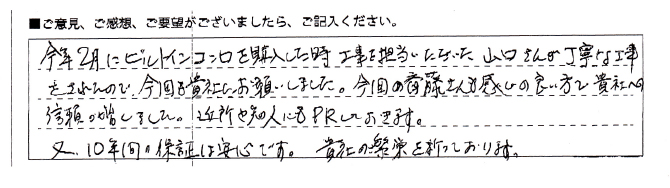 ■ご意見、ご感想、ご要望がございましたら、ご記入ください。
今年2月にビルトインコンロを購入した時工事を担当いただいた山口さんが丁寧な工事
をされたので、今回も貴社にお願いしました。今回の斎藤さんも感じの良い方で貴社への
信頼が増しました。近所や知人にもPRしておきます。
又、10年間の保証は安心です。貴社の繁栄を祈っております。